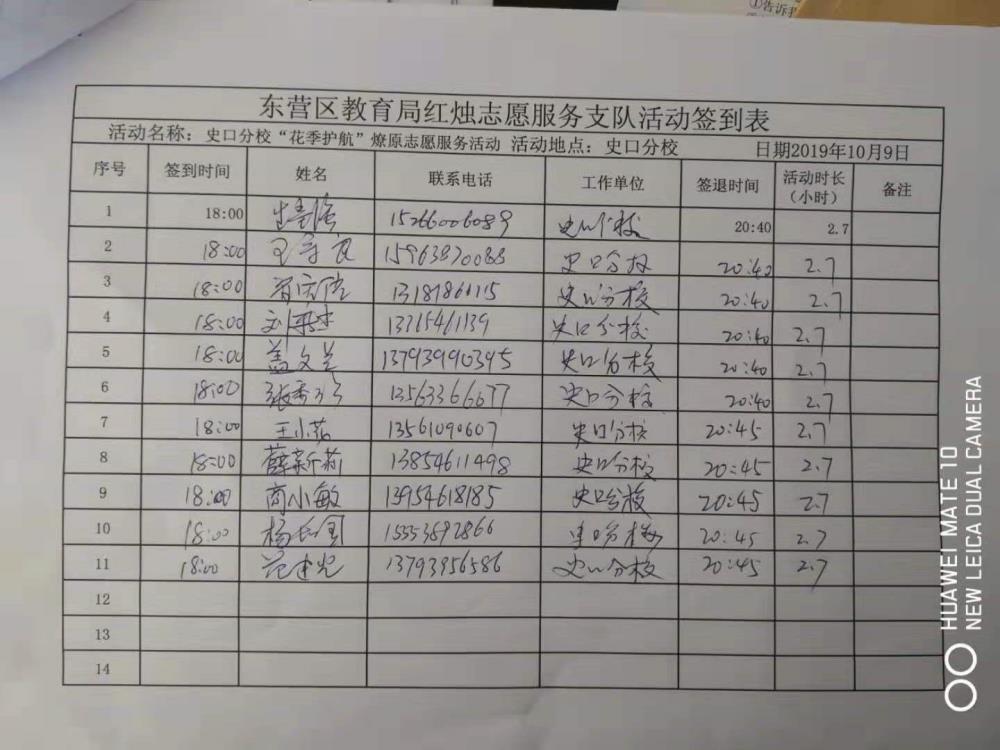 ①告诉
东营区教育局红烛志愿服务支队活动签到表
活动名称：史口分校“花季护航”燎原志愿服务活动 活动地点：史口分校 日期2019年10月9日
序号 签到时间 姓名 联系电话 工作单位 签退时间 活动时长（小时） 备注
1 18:00 15266006089 史口分校 20:40 2.7
2 18:00 王守良 15963870088 史口分校 20:40 2.7
3 18:00 13181861115 史口分校 20:40 2.7
4 18:00 13715461139 史口分校 20:40 2.7
5 18:00 盖文兰 13793990395 史口分校 20:40 2.7
6 18:00 13563366677 史口分校 20:40 2.7
7 18:00 王小茹 13561090607 史口分校 20:45 2.7
8 18:00 薛新莉 13854611498 史口分校 20:45 2.7
9 18:00 商小敏 13954618185 史口分校 20:45 2.7
10 18:00 杨长国 15553892866 史口分校 20:45 2.7
11 18:00 范建光 13793956586 史口分校 20:45 2.7
12
13
14
HUAWEI MATE 10
NEW LEICA DUAL CAMERA